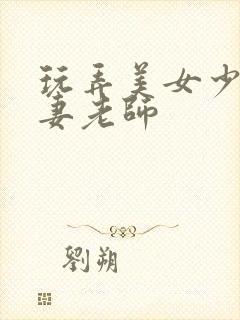 玩弄美女少
妻老師
劉朔